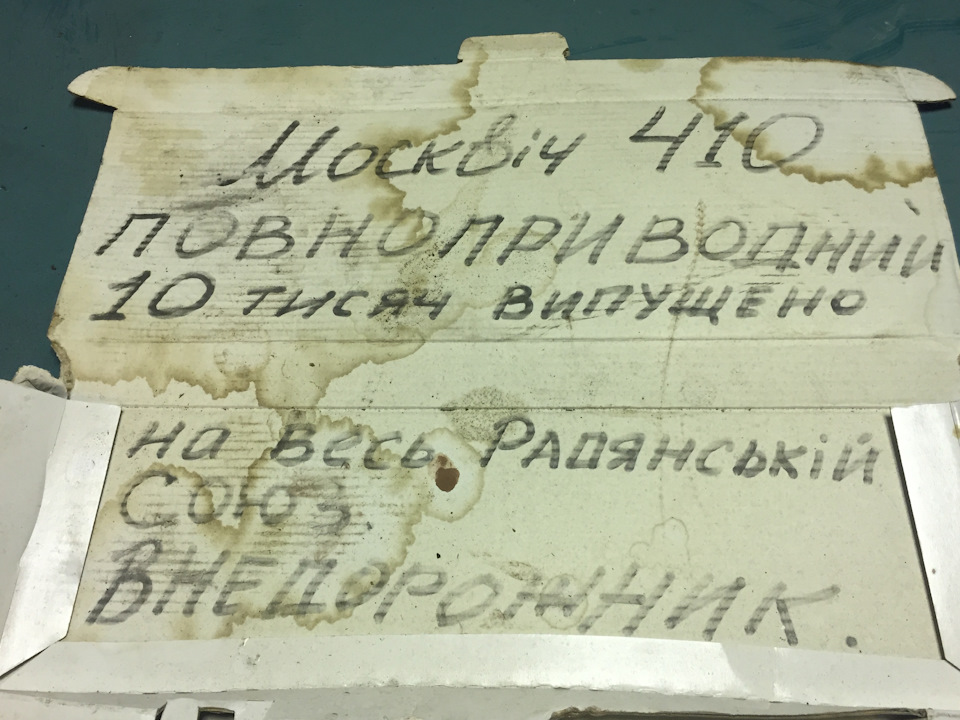 Москвіч 410
ПОВНОПРИВОДНИЙ
10 тисяч випущено
на весь Радянській
Союз.
ВНЕДОРОЖНИК.